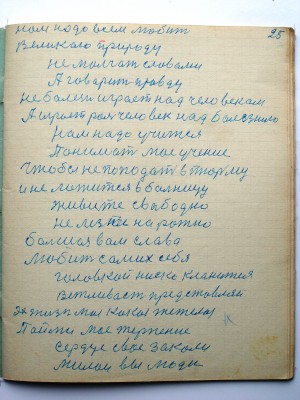 25
нам надо всем любит
Великою природу
не молчат словами
А говорит правду
не болезн играет над человекам
А играет роя человек над болезнию
Нам надо учится
Понимат мое учение
Чтобы не поподат в тюрму
и не лежится в болницу
живите свабодно
не лезте на рожно
болшая вам слава
Любит самих себя
головкой ниско кланятся
Вежливаст представляй
жизн моя какая тяжелая
Пойми мое терпение
Сердце свае закали
милаи вы люди